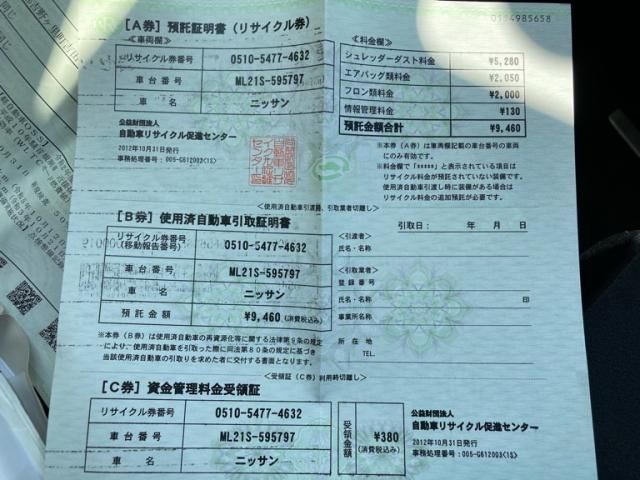 0154985658
[A券] 預託証明書(リサイクル券)
≪車両欄≫
リサイクル券番号 0510-5477-4632
車台番号 ML21S-595797
車名 ニッサン
公益財団法人
自動車リサイクル促進センター
2012年10月31日発行
事務処理番号:005-G612003<1S>
≪料金欄≫
シュレッダーダスト料金 ¥5,280
エアバッグ類料金 ¥2,050
フロン類料金 ¥2,000
情報管理料金 ¥130
預託金額合計 ¥9,460
※本券(A券)は車両欄記載の車台番号の車両
にのみ有効です。
※料金欄で「*****」と表示されている項目は
リサイクル料金が預託されていない装備です。
使用済自動車引渡し時に装備がある場合は
リサイクル料金の追加預託が必要です。
<使用済自動車引渡時、引取業者切離し>
[B券] 使用済自動車引取証明書
引取日: 年 月 日
リサイクル券番号
(移動報告番号) 0510-5477-4632
車台番号 ML21S-595797
車名 ニッサン
預託金額 ¥9,460 (消費税込み)
<引渡者>
氏名・名称
<引取業者>
登録番号
氏名・名称 印
事業所名
所在地
TEL.
※本券(B券)は使用済自動車の再資源化等に関する法律第9条の規定
により、使用済自動車を引取った際に同法第80条の規定に基づき
当該使用済自動車の引取りを求めた者に交付する書面となります。
<受領証(C券)利用時切離し>
[C券] 資金管理料金受領証
リサイクル券番号 0510-5477-4632
車台番号 ML21S-595797
車名 ニッサン
受領金額 ¥380
(消費税込み)
公益財団法人
自動車リサイクル促進センター
2012年10月31日発行
事務処理番号:005-G612003<1S>